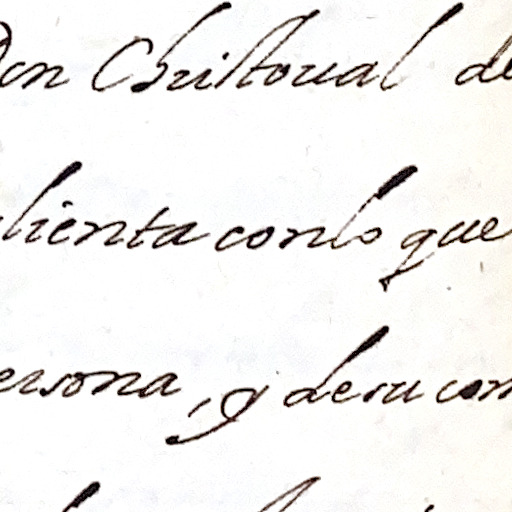 Don Christoual de
lienta conlo que
ersona, y desu com